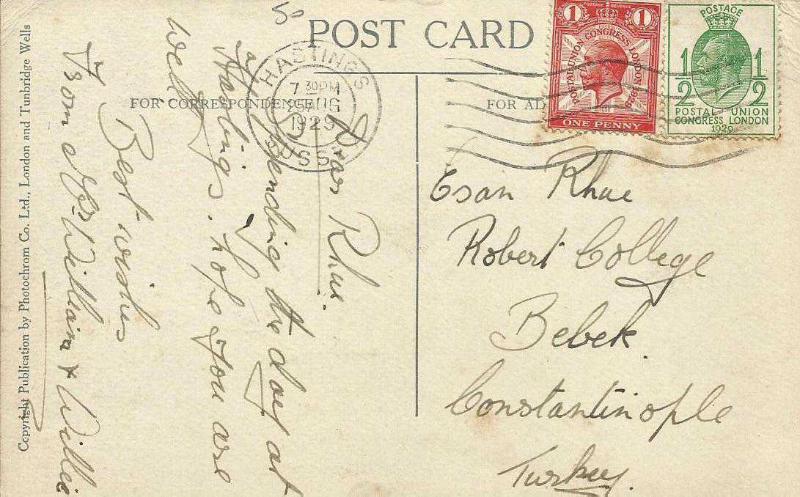 POST CARD
FOR CORRESPONDENCE
FOR AD
Copyright Publication by Photochrom Co. Ltd., London and Tunbridge Wells
HASTINGS
7 30PM
AUG
1929
SUSSEX
1 1
POSTAL UNION CONGRESS LONDON 1929
ONE PENNY
POSTAGE
1/2 1/2
POSTAL UNION
CONGRESS LONDON
1929
Dear Rhue.
Spending the day at
Hastings. hope you are
well
Best wishes
From Mr William & Willie
Esan Rhue
Robert College
Bebek.
Constantinople
Turkey.